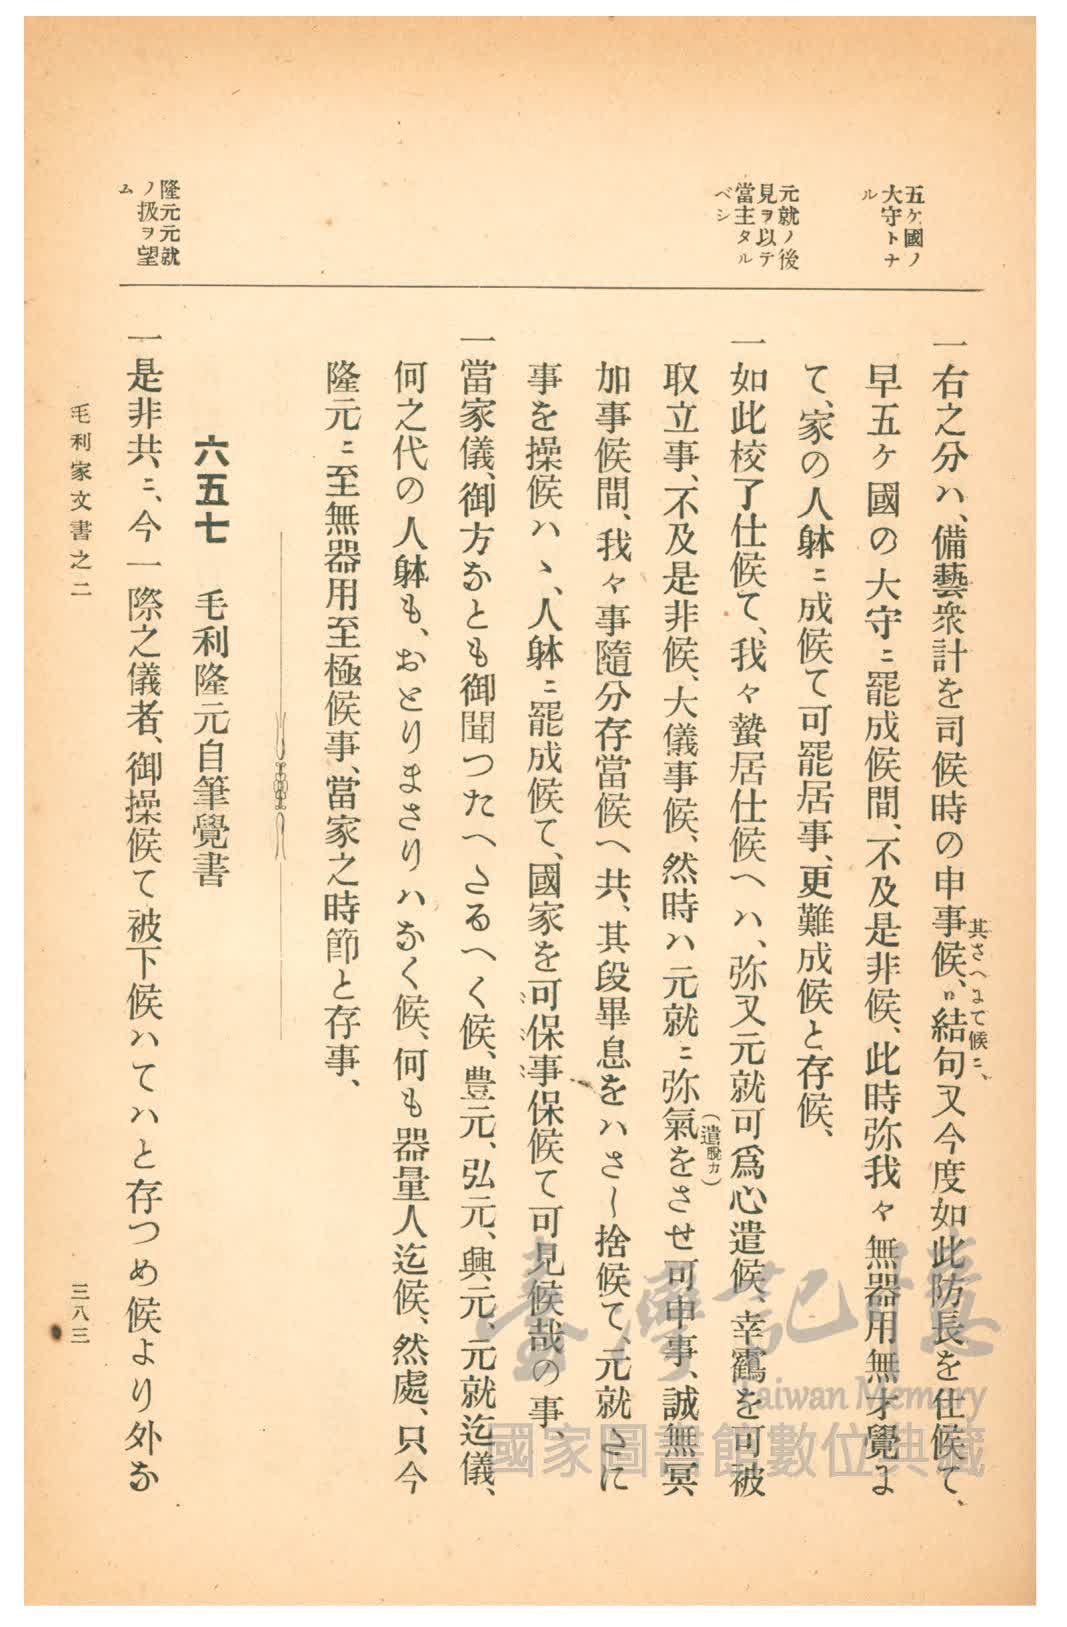 五ケ國ノ
大守トナ
ル
元就ノ後
見ヲ以テ
當主タル
ベシ
隆元元就
ノ扱ヲ望
ム
一右之分ハ、備藝衆計を司候時の申事候、結句又今度如此防長を仕候て、
其さへにて候ニ、
早五ケ國の大守ニ罷成候間、不及是非候、此時弥我々無器用無才覺よ
て、家の人躰ニ成候て可罷居事、更難成候と存候、
一如此校了仕候て、我々蟄居仕候ヘハ、弥又元就可爲心遣候、幸靏を可被
(遣脱カ)
取立事、不及是非候、大儀事候、然時ハ元就ニ弥氣をさせ可申事、誠無冥
加事候間、我々事隨分存當候へ共、其段畢息をハさし捨候て、元就さに
事を操候ハヽ、人躰ニ罷成候て、國家を可保事保候て可見候哉の事、
一當家儀、御方なとも御聞つたへさるへく候、豊元、弘元、興元、元就迄儀、
何之代の人躰も、おとりまさりハなく候、何も器量人迄候、然處、只今
隆元ニ至無器用至極候事、當家之時節と存事、
六五七 毛利隆元自筆覺書
一是非共ニ、今一際之儀者、御操候て被下候ハてハと存つめ候より外な
毛利家文書之二
三八三
臺灣記憶
Taiwan Memory
國家圖書館數位典藏